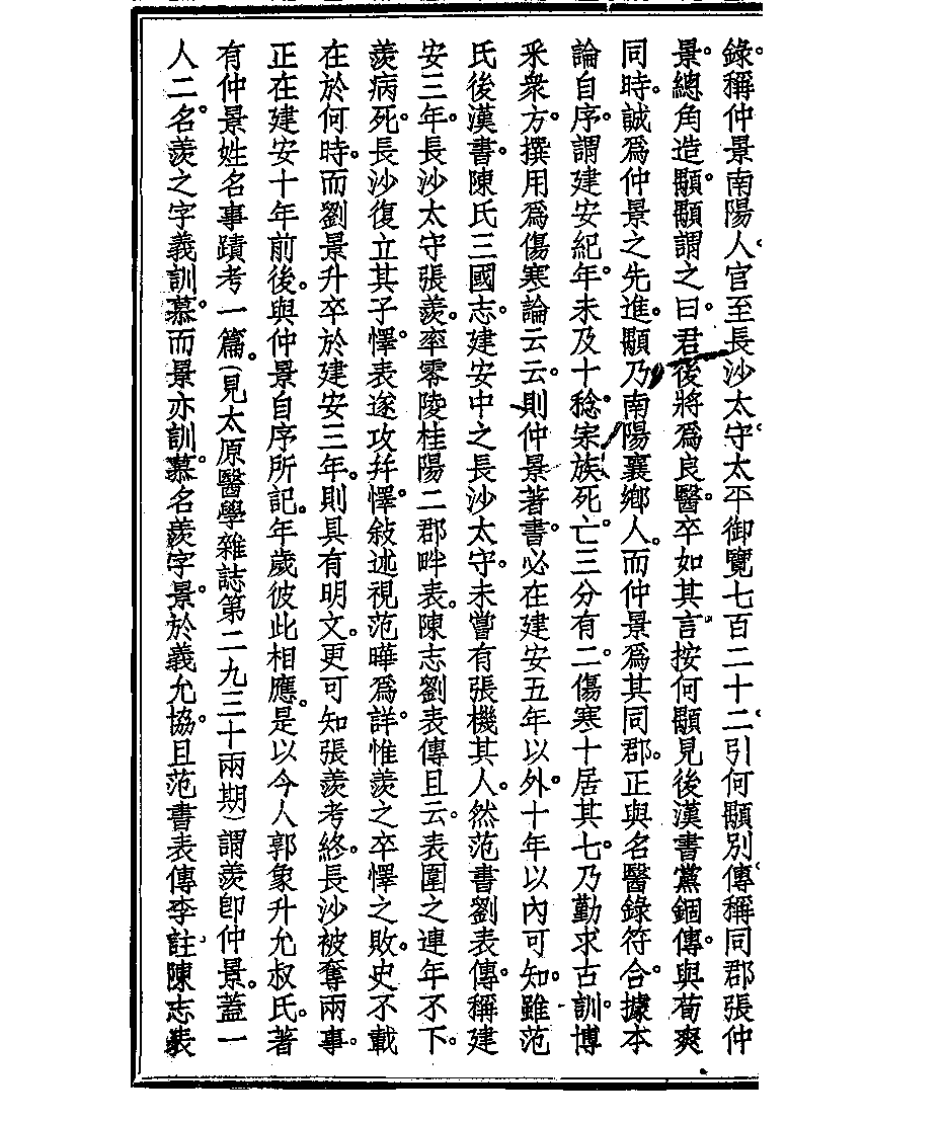 錄。稱仲景南陽人。官至長沙太守。太平御覽七百二十二。引何顒別傳。稱同郡張仲
景。總角造顒。顒謂之曰。君後將爲良醫。卒如其言。按何顒見後漢書黨錮傳。與荀爽
同時。誠爲仲景之先進。顒乃南陽襄鄉人。而仲景爲其同郡。正與名醫錄符合。據本
論自序。謂建安紀年。未及十稔。宗族死亡。三分有二。傷寒十居其七。乃勤求古訓。博
采衆方。撰用爲傷寒論云云。則仲景著書。必在建安五年以外。十年以內可知。雖范
氏後漢書。陳氏三國志。建安中之長沙太守。未嘗有張機其人。然范書劉表傳。稱建
安三年。長沙太守張羨。率零陵桂陽二郡畔表。陳志劉表傳且云。表圍之連年不下。
羨病死。長沙復立其子懌。表遂攻幷懌。敍述視范曄爲詳。惟羨之卒懌之敗。史不載
在於何時。而劉景升卒於建安三年。則具有明文。更可知張羨考終。長沙被奪兩事。
正在建安十年前後。與仲景自序所記。年歲彼此相應。是以今人郭象升允叔氏。著
有仲景姓名事蹟考一篇。(見太原醫學雜誌第二九三十兩期)謂羨卽仲景。蓋一
人二名。羨之字義訓慕。而景亦訓慕。名羨字景。於義允協。且范書表傳李註。陳志表